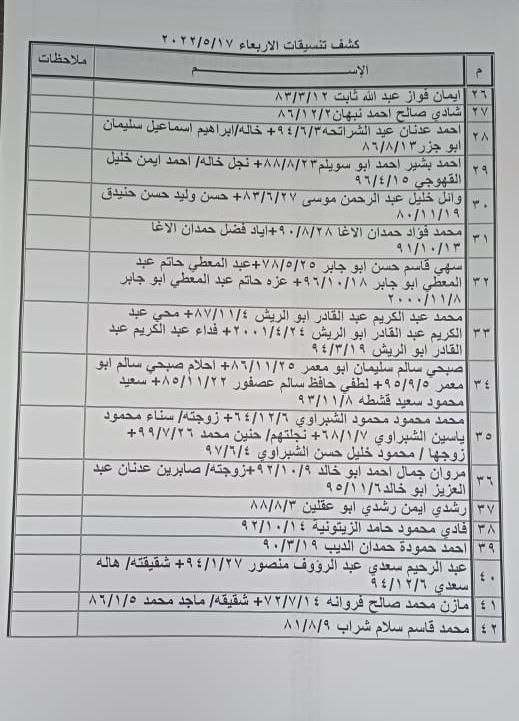 كشف تنسيقات الاربعاء ٢٠٢٢/٥/١٧
م الإســـــــــــــــم ملاحظات
٢٦ ايمان فواز عبد الله ثابت ٨٣/٣/١٢
٢٧ شادي صالح احمد نبهان ٨٦/١٢/٢
٢٨ احمد عدنان عيد الشراتحه ٩٤/٦/٣+ خاله/ابراهيم اسماعيل سليمان
ابو جزر ٨٦/٨/١٣
٢٩ احمد بشير احمد ابو سويلم ٨٨/٨/٢٣+ نجل خاله/ احمد ايمن خليل
القهوجي ٩٦/٤/١٥
٣٠ وائل خليل عبد الرحمن موسى ٨٣/٦/٢٧+ حسن وليد حسن حنيدق
٨٠/١١/١٩
٣١ محمد فؤاد حمدان الاغا ٩٠/٨/٢٨+اياد فضل حمدان الاغا
٩١/١٠/١٣
٣٢ سهى قاسم حسن ابو جابر ٧٨/٥/٢٥+عبد المعطي حاتم عبد
المعطي ابو جابر ٩٦/١٠/١٨+ عزه حاتم عبد المعطي ابو جابر
٢٠٠٠/١١/٨
٣٣ محمد عبد الكريم عبد القادر ابو الريش ٨٧/١١/٤+ محي عبد
الكريم عبد القادر ابو الريش ٢٠٠١/٤/٢٤+ فداء عبد الكريم عبد
القادر ابو الريش ٩٤/٣/١٩
٣٤ صبحي سالم سليمان ابو معمر ٨٦/١١/٢٥+ أحلام صبحي سالم ابو
معمر ٩٥/٩/٥+ لطفي حافظ سالم عصفور ٨٥/١١/٢٢+ سعيد
محمود سعيد قشطه ٩٣/١١/٨
٣٥ محمد محمود محمود الشبراوي ٦٤/١٢/٦+ زوجته/ سناء محمود
ياسين الشبراوي ٦٨/١/٧+ نجلتهم/ حنين محمد ٩٩/٧/٢٦+
زوجها / محمود خليل حسن الشبراوي ٩٧/٦/٤
٣٦ مروان جمال احمد ابو خالد ٩٢/١٠/٩+زوجته/ صابرين عدنان عبد
العزيز ابو خالد ٩٥/١١/٦
٣٧ رشدي ايمن رشدي ابو عقلين ٨٨/٨/٣
٣٨ فادي محمود حامد الزيتونية ٩٢/١٠/١٤
٣٩ احمد حمودة حمدان الديب ٩٠/٣/١٩
٤٠ عبد الرحيم سعدي عبد الرؤوف منصور ٩٤/١/٢٧+ شقيقته/ هاله
سعدي ٩٤/١٢/٦
٤١ مازن محمد صالح فروانه ٧٢/٧/١٤+ شقيقه/ ماجد محمد ٨٦/١/٥
٤٢ محمد قاسم سلام شراب ٨١/٨/٩